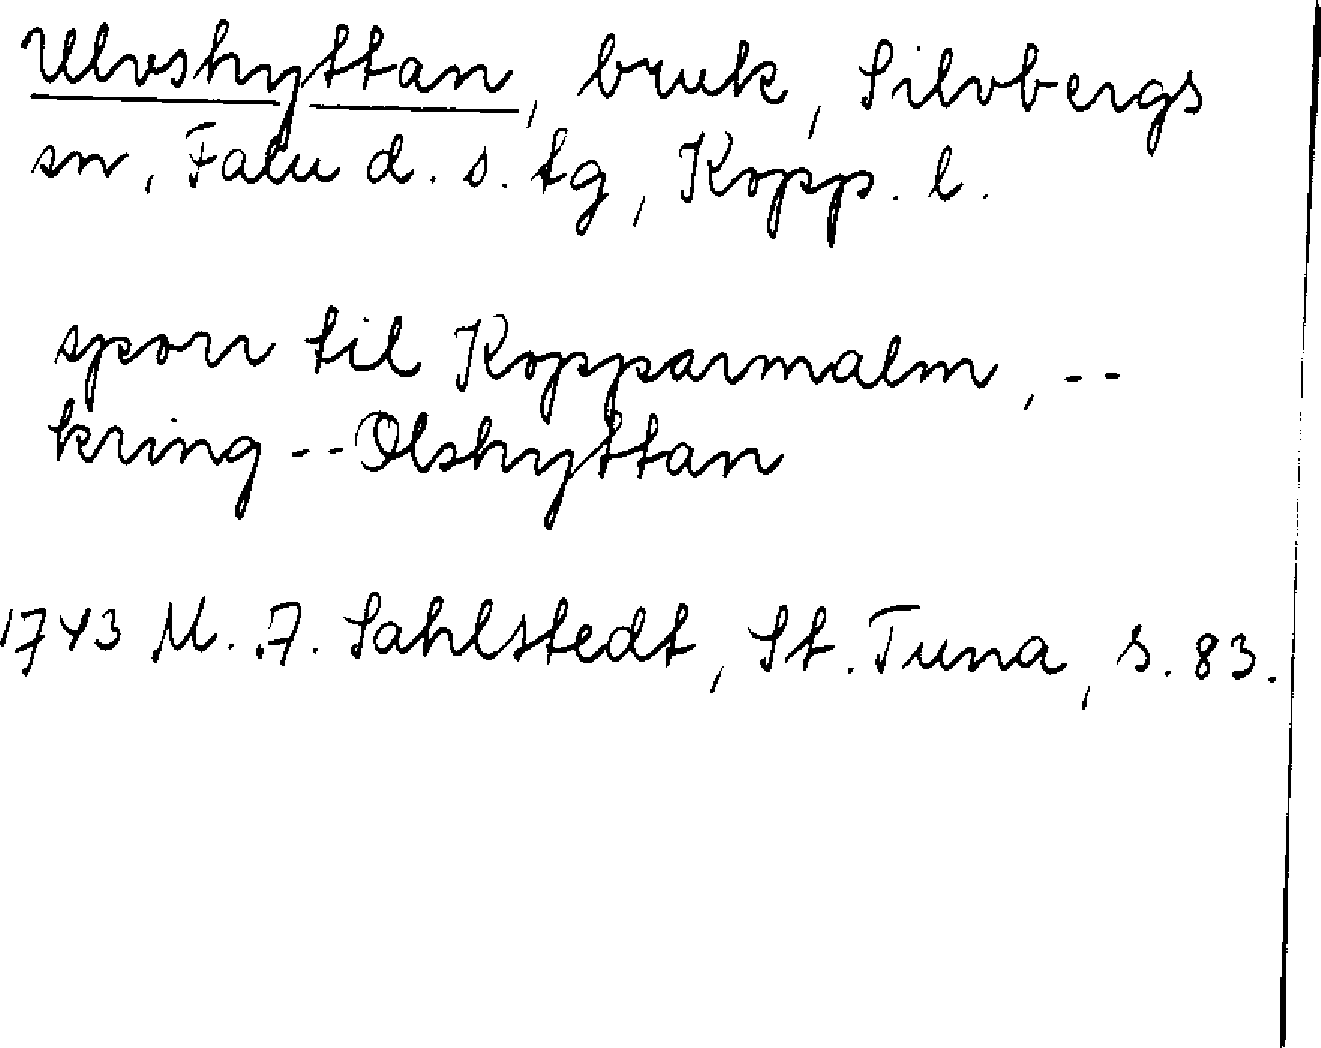 Ulvshyttan, bruk, Silvbergs
sn, Falu d. s. tg, Kopp. l.
sporr til Kopparmalm, --
kring -- Olshyttan
1743 M. A. Sahlstedt, St. Tuna, s. 83.